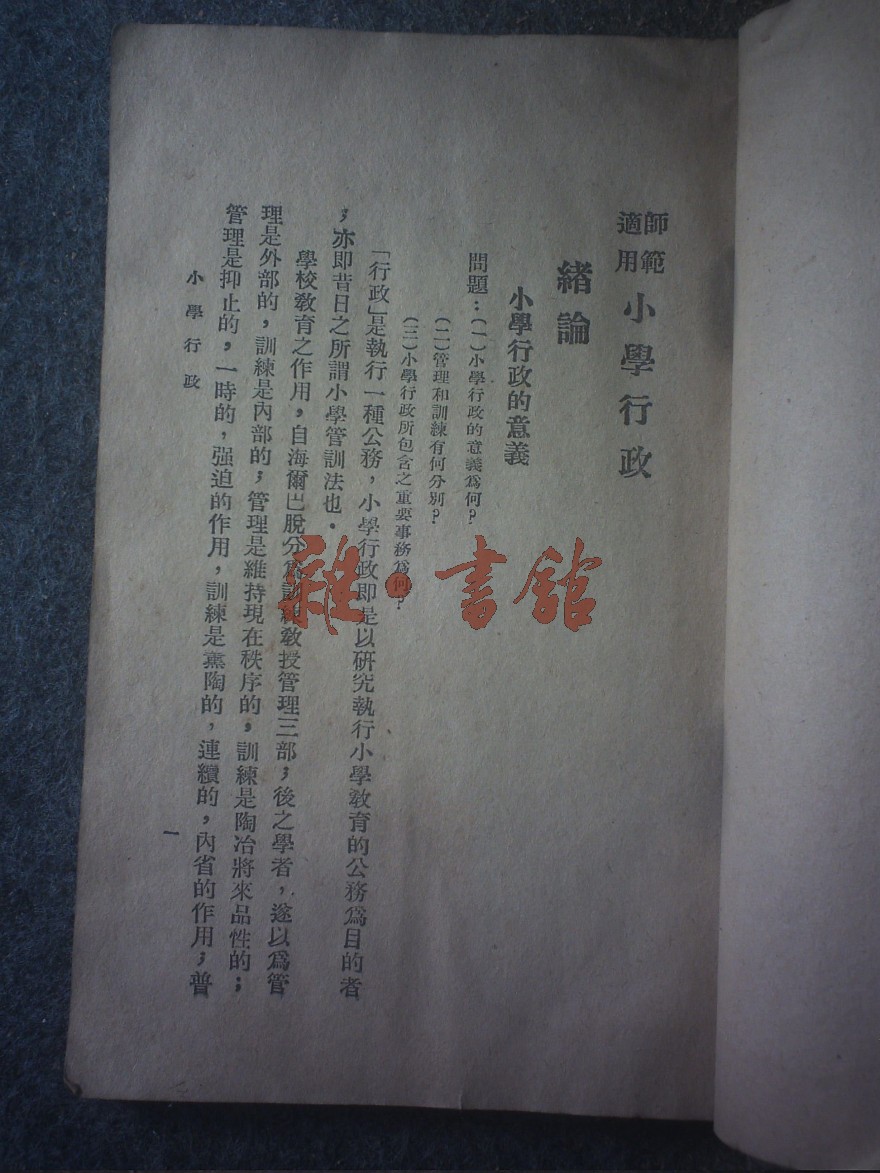 師範
適用
小學行政
緒論
小學行政的意義
問題：(一)小學行政的意義爲何？
(二)管理和訓練有何分別？
(三)小學行政所包含之重要事務爲何？
「行政」是執行一種公務，小學行政即是以研究執行小學教育的公務爲目的者
，亦即昔日之所謂小學管訓法也．
學校教育之作用，自海爾巴脫分爲訓練教授管理三部；後之學者，遂以爲管
理是外部的，訓練是內部的；管理是維持現在秩序的，訓練是陶冶將來品性的；
管理是抑止的，一時的，强迫的作用，訓練是薰陶的，連續的，內省的作用；普
小學行政
一
雜·書館